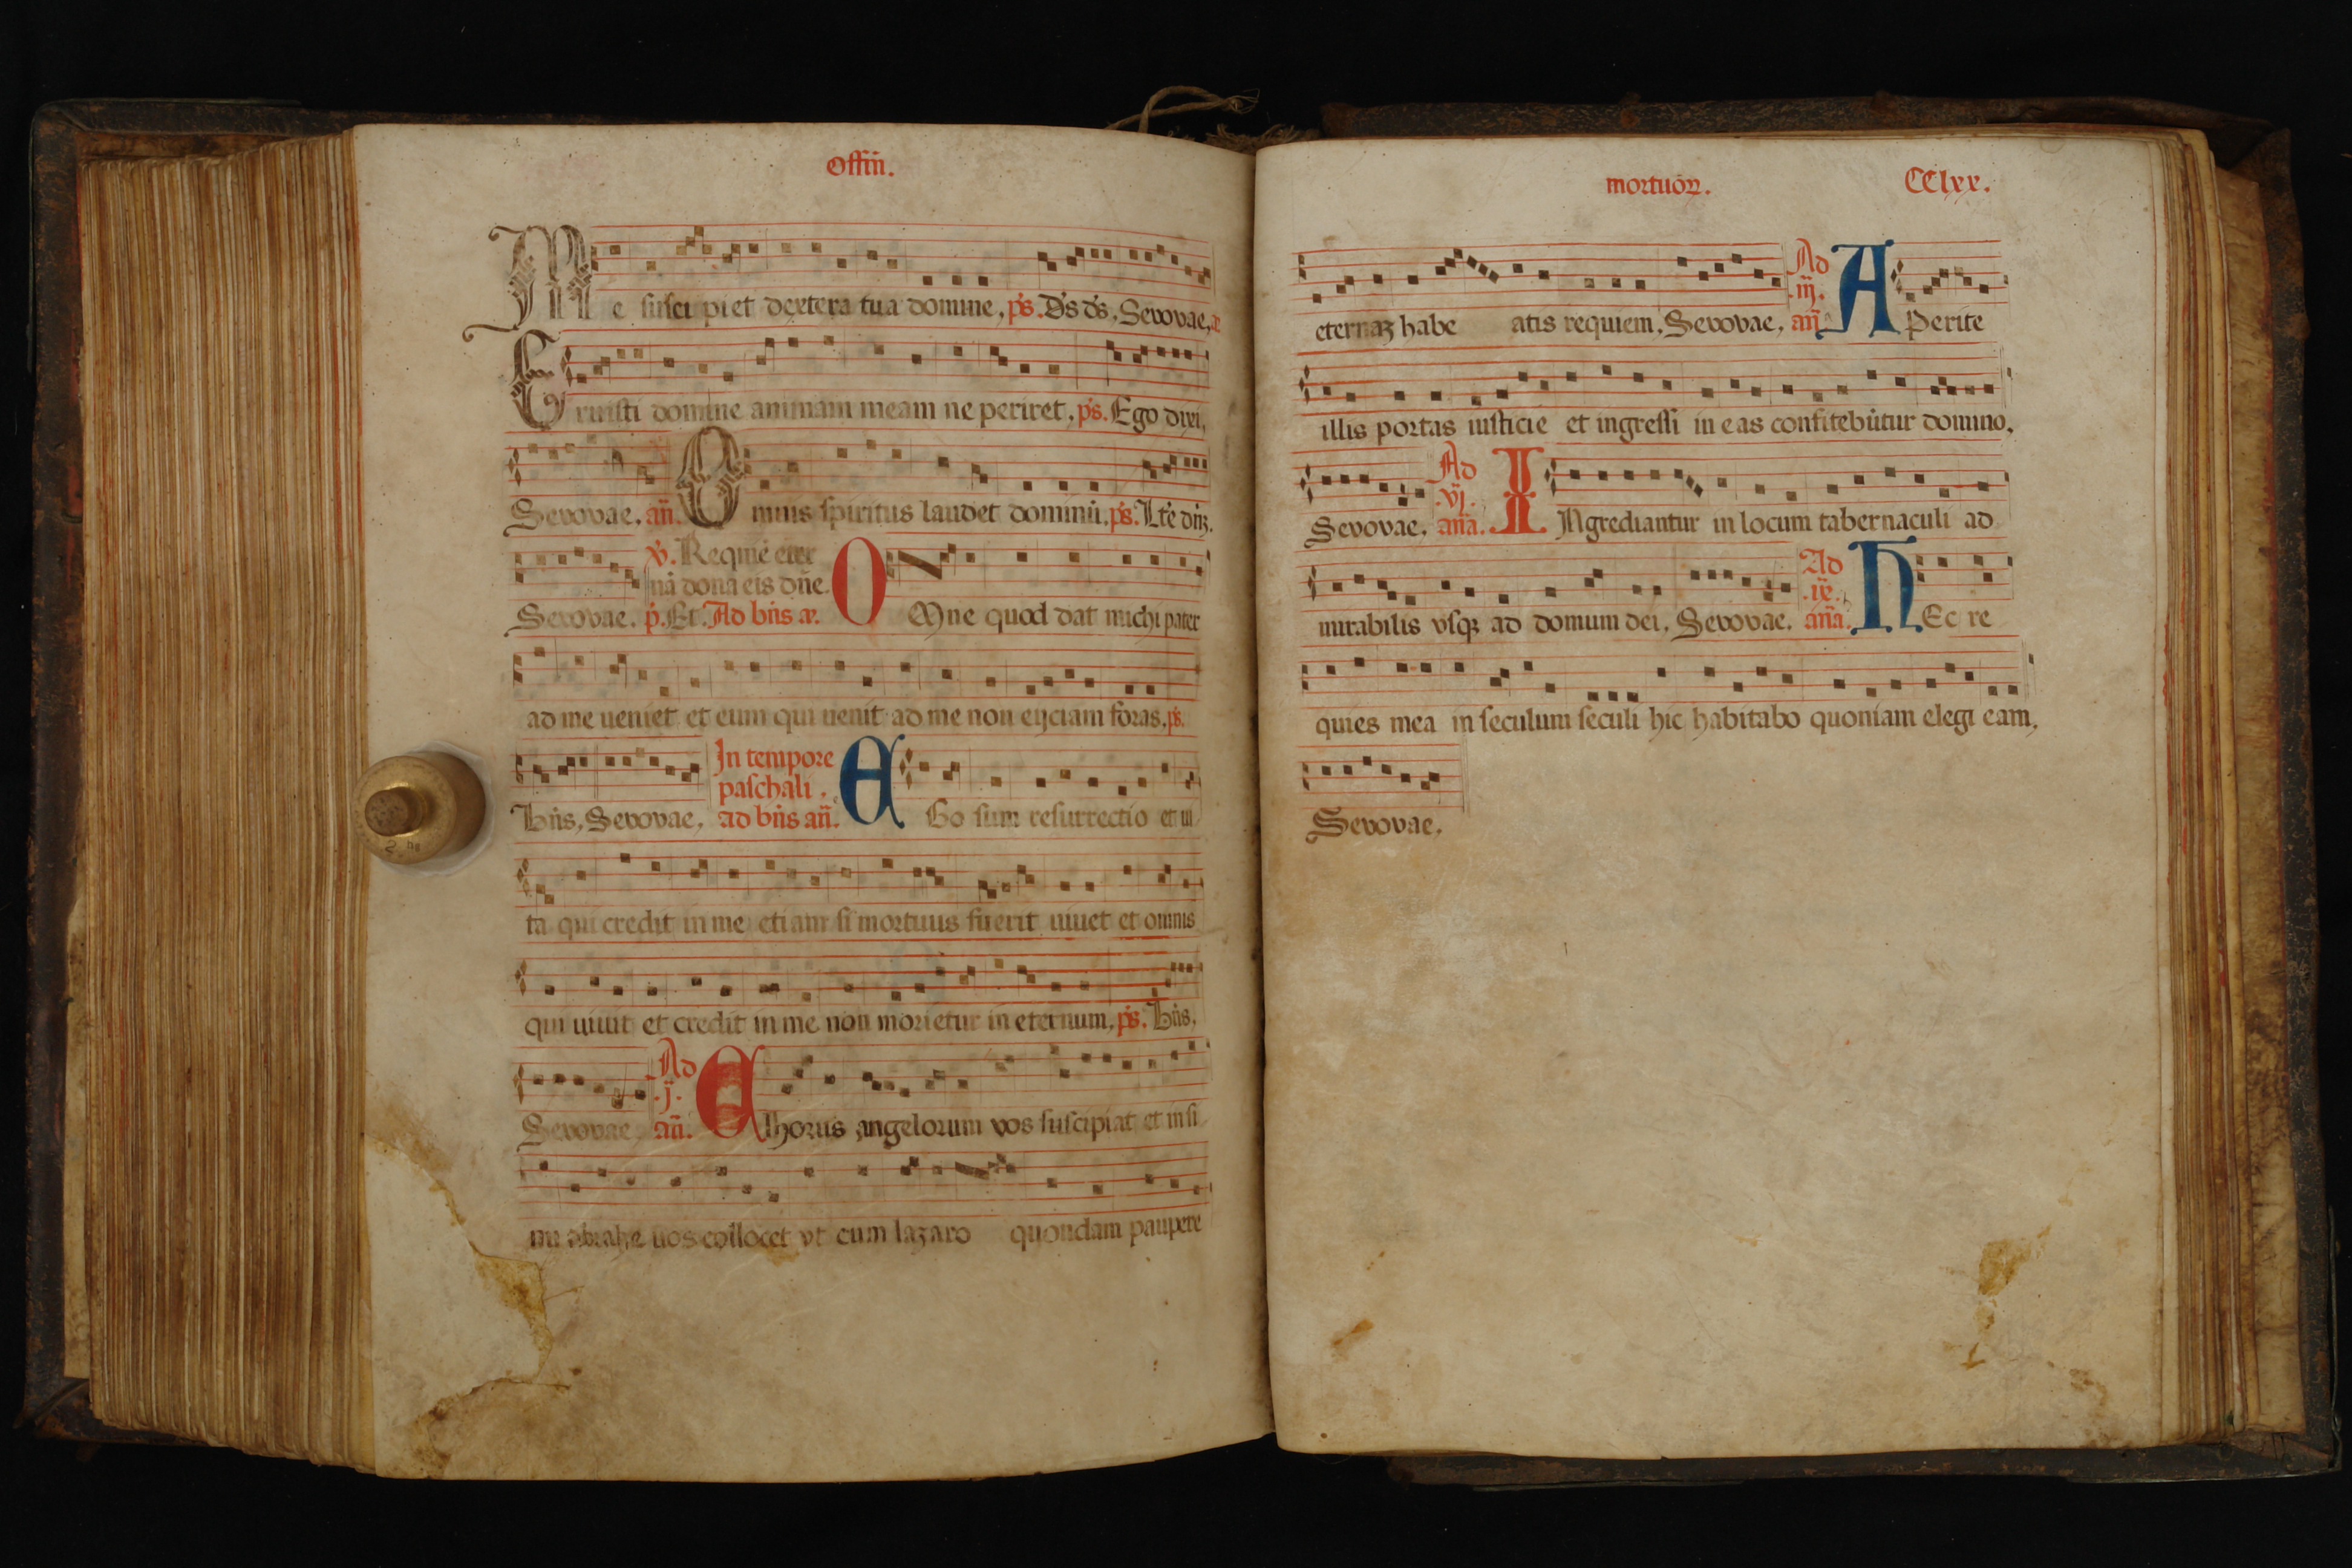 Offiñ.
Me suscipiet dextera tua domine, ps. Ds ds, Sevovae, æ
Eruisti domine animam meam ne periret, ps. Ego dixi,
Sevovae, añ. Omnis spiritus laudet dominū, ps. Lte dñz.
v. Requiē eter
nā dona eis dñe.
Sevovae. p. Et. Ad bñs æ. OMne quod dat michi pater
ad me ueniet et eum qui uenit ad me non eijciam foras, ps.
In tempore
paschali.
Bñs, Sevovae, ad bñs añ. EGo sum resurrectio et ui
ta qui credit in me etiam si mortuus fuerit uiuet et omnis
qui uiuit et credit in me non morietur in eternum, ps. Bñs,
Ad
.j.
Sevovae, añ. CHorus angelorum vos suscipiat et in si
nu abrahe uos collocet vt cum lazaro quondam paupere
mortuoꝝ. CClxx.
Ad
.iij.
eternaꝫ habeatis requiem, Sevovae, añ. APerite
illis portas iusticie et ingressi in eas confitebūtur domino,
Ad
.vj.
Sevovae, aña. INgrediantur in locum tabernaculi ad
Ad
.ix.
mirabilis vsqꝫ ad domum dei, Sevovae, aña. HEc re
quies mea in seculum seculi hic habitabo quoniam elegi eam,
Sevovae,
2 hg